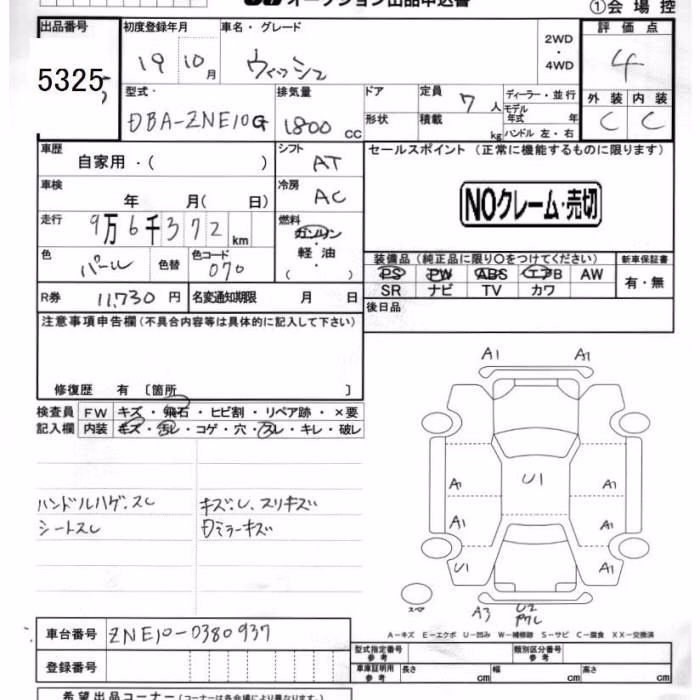 オークション出品申込書
①会場控
出品番号 初度登録年月 車名・グレード 2WD・4WD 評価点
5325 19 10月 ウィッシュ 4
型式・ 排気量 ドア 定員 7人 ディーラー・並行 外装 内装
DBA-ZNE10G 1800 cc 形状 積載 kg モデル年式 年 ハンドル 左・右 C C
車歴 自家用・( ) シフト AT セールスポイント (正常に機能するものに限ります)
車検 年 月( 日) 冷房 AC
NOクレーム・売切
走行 9万6千372km 燃料 ガソリン・軽油・( )
色 パール 色替 色コード 070
装備品 (純正品に限り○をつけてください) 新車保証書
PS PW ABS エアB AW 有・無
SR ナビ TV カワ
R券 11,730円 名変通知期限 月 日
後日品
注意事項申告欄 (不具合内容等は具体的に記入して下さい)
修復歴 有 〔箇所 〕
検査員 FW キズ・飛石・ヒビ割・リペア跡・×要
記入欄 内装 キズ・汚レ・コゲ・穴・スレ・キレ・破レ
ハンドルハゲ、スレ キズ、U、スリキズ
シートスレ ミラーキズ
A1 A1
U1
A1 A1
A1 A1
U1 A1
スペア A3 U2
A-キズ E-エクボ U-凹み W-補修跡 S-サビ C-腐食 XX-交換済
車台番号 ZNE10-0380937
型式指定番号 参考 類別区分番号 参考
登録番号
車庫証明用 参考 長さ cm 幅 cm 高さ cm
希望出品コーナー (コーナーは各会場により異なります)